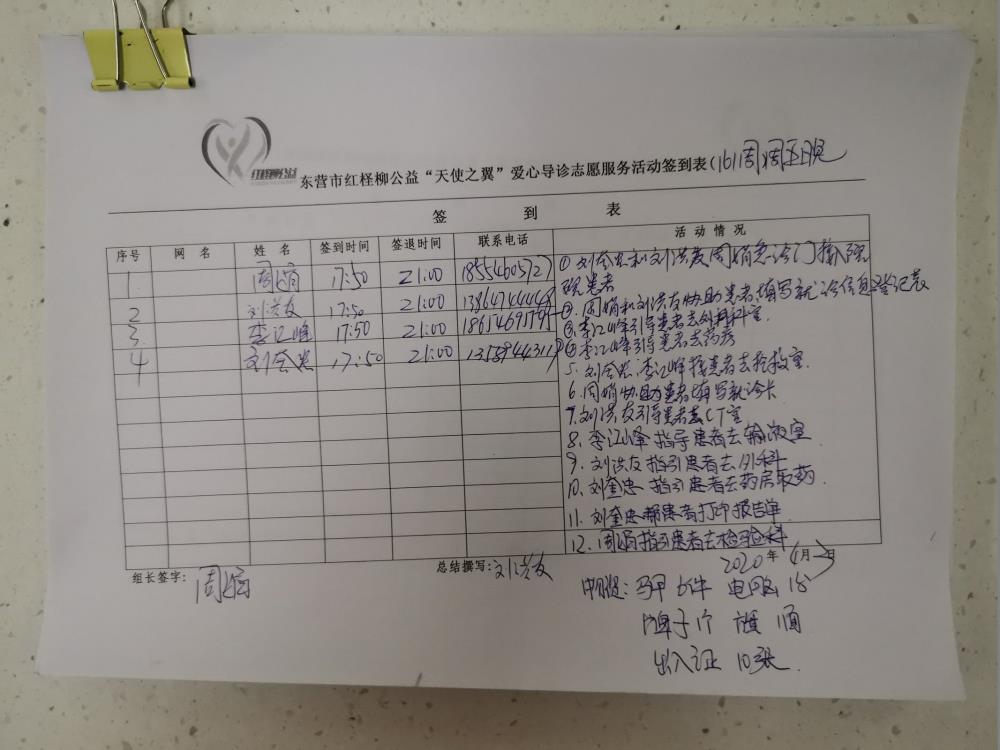 红柽柳公益
东营市红柽柳公益“天使之翼”爱心导诊志愿服务活动签到表(161周周五晚
签 到 表
序号 网 名 姓 名 签到时间 签退时间 联系电话 活 动 情 况
1 周娟 17:50 21:00 18554605727
2 刘洪友 17:50 21:00 13864744448
3 李江峰 17:50 21:00
4 刘奎忠 17:50 21:00
①刘奎忠和刘洪友周娟急诊门接入院
患者
②.周娟和刘洪友协助患者填写就诊信息登记表
③李江峰引导患者去外科科室.
④李江峰引导患者去药房
5.刘奎忠.李江峰接患者去抢救室.
6.周娟协助患者填写就诊卡
7.刘洪友引导患者去CT室
8.李江峰指导患者去输液室
9.刘洪友指引患者去外科
10.刘奎忠 指引患者去药房取药.
11.刘奎忠帮患者打印报告单
12.周娟指引患者去检验科
2020年4月3日
组长签字: 周娟 总结撰写: 刘洪友
马甲 件 电脑 1台
牌子1个 旗 1面
出入证 10张.